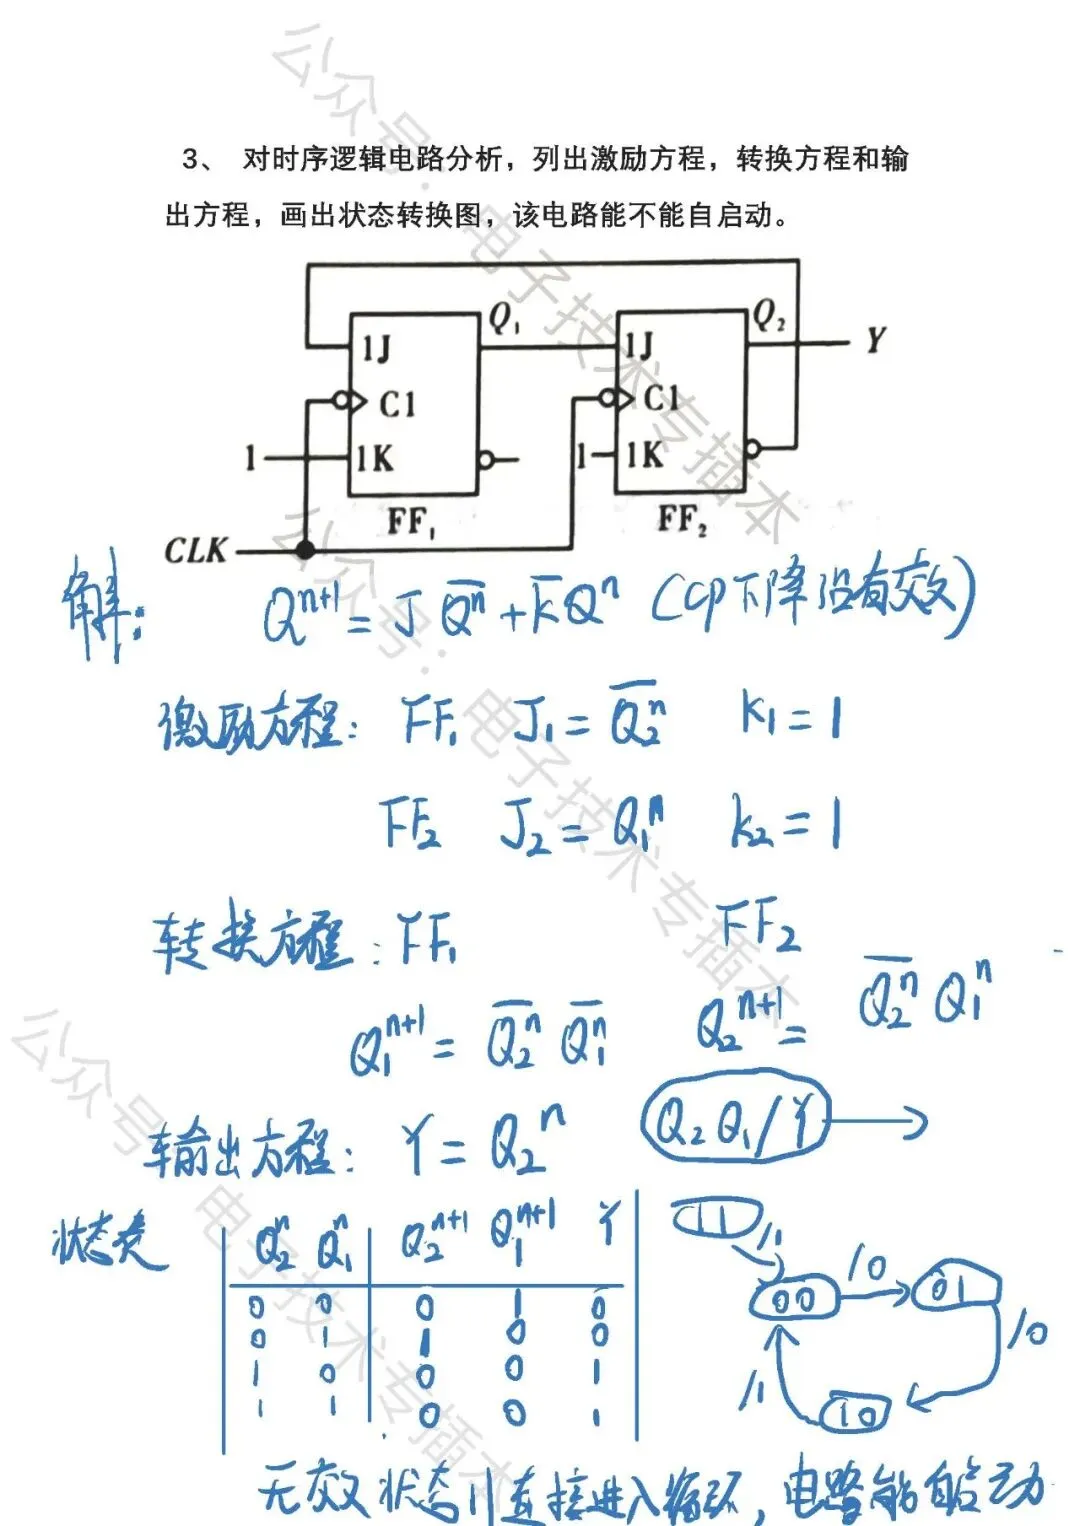 3、 对时序逻辑电路分析，列出激励方程，转换方程和输
出方程，画出状态转换图，该电路能不能自启动。
Q₁ Q₂
1J 1J Y
C1 C1
1 1K 1 1K
FF₁ FF₂
CLK
解：Qⁿ⁺¹ = J Q̅ⁿ + K̅ Qⁿ （CP下降沿有效）
激励方程：FF₁ J₁ = Q̅₂ⁿ K₁ = 1
FF₂ J₂ = Q₁ⁿ K₂ = 1
转换方程：FF₁ FF₂
Q₁ⁿ⁺¹ = Q̅₂ⁿ Q̅₁ⁿ Q₂ⁿ⁺¹ = Q̅₂ⁿ Q₁ⁿ
输出方程：Y = Q₂ⁿ Q₂ Q₁ / Y
状态表 Q₂ⁿ Q₁ⁿ Q₂ⁿ⁺¹ Q₁ⁿ⁺¹ Y
0 0 0 1 0
0 1 1 0 0
1 0 0 0 1
1 1 0 0 1
11 /1
00 /0 01
/1 10 /0
无效状态11直接进入循环，电路能自启动
公众号：电子技术专插本
公众号：电子技术专插本
公众号：电子技术专插本